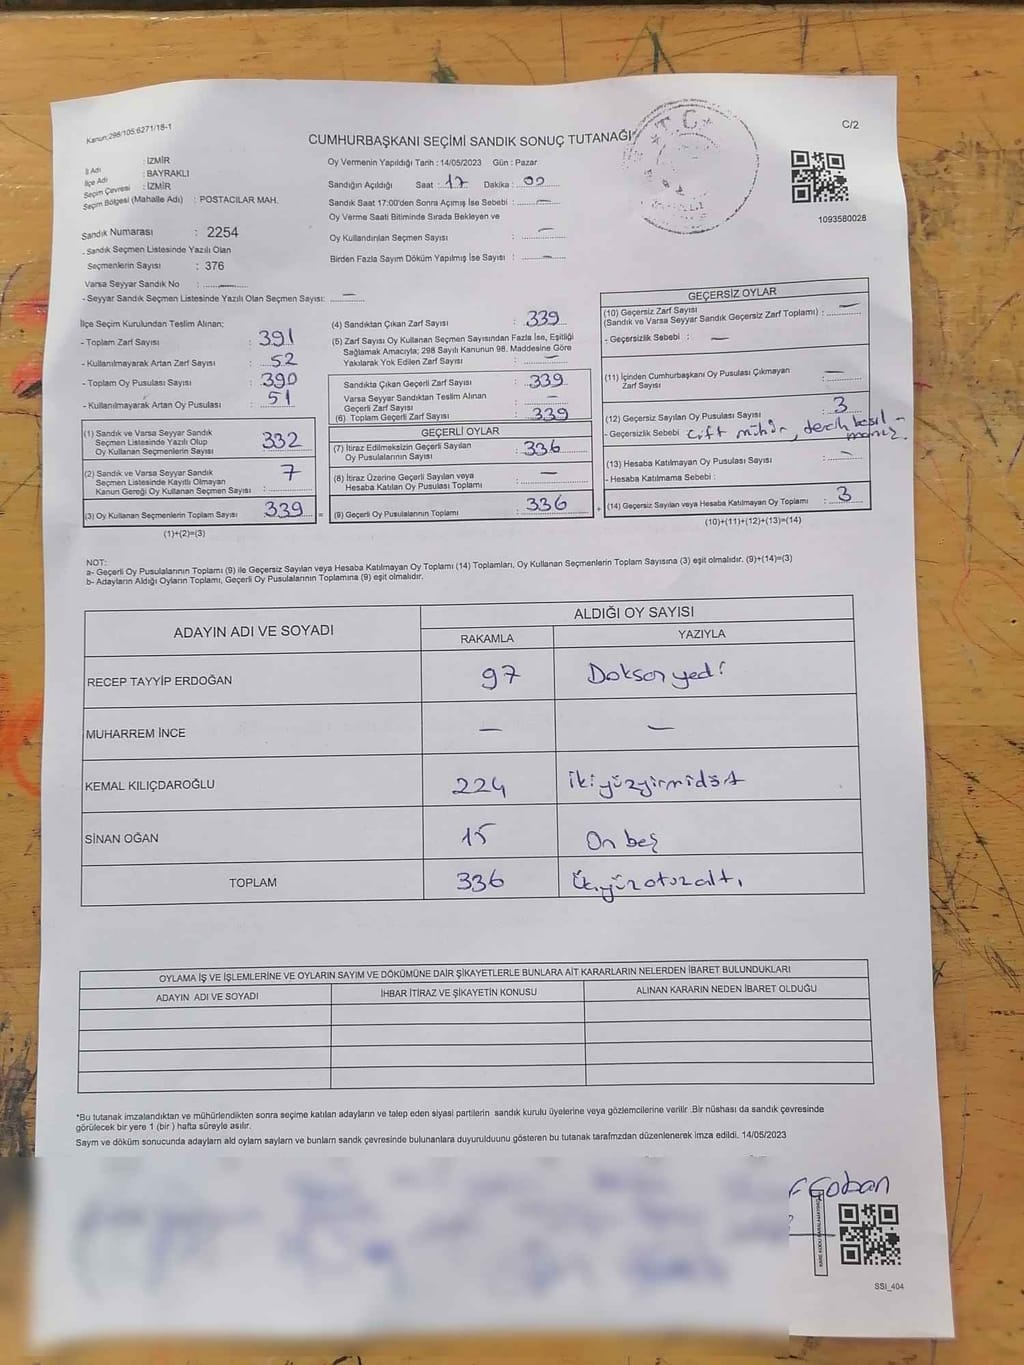 Kanun:298/105:6271/18-1
C/2
CUMHURBAŞKANI SEÇİMİ SANDIK SONUÇ TUTANAĞI
T.C.
İl Adı : İZMİR
İlçe Adı : BAYRAKLI
Seçim Çevresi : İZMİR
Seçim Bölgesi (Mahalle Adı) : POSTACILAR MAH.
Sandık Numarası : 2254
- Sandık Seçmen Listesinde Yazılı Olan
Seçmenlerin Sayısı : 376
Varsa Seyyar Sandık No : —
- Seyyar Sandık Seçmen Listesinde Yazılı Olan Seçmen Sayısı: —
Oy Vermenin Yapıldığı Tarih : 14/05/2023 Gün : Pazar
Sandığın Açıldığı Saat : 17 Dakika : 00
Sandık Saat 17:00'den Sonra Açımış İse Sebebi : —
Oy Verme Saati Bitiminde Sırada Bekleyen ve
Oy Kullandırılan Seçmen Sayısı : —
Birden Fazla Sayım Döküm Yapılmış İse Sayısı : —
1093580028
İlçe Seçim Kurulundan Teslim Alınan;
- Toplam Zarf Sayısı : 391
- Kullanılmayarak Artan Zarf Sayısı : 52
- Toplam Oy Pusulası Sayısı : 390
- Kullanılmayarak Artan Oy Pusulası : 51
(1) Sandık ve Varsa Seyyar Sandık
Seçmen Listesinde Yazılı Olup
Oy Kullanan Seçmenlerin Sayısı : 332
(2) Sandık ve Varsa Seyyar Sandık
Seçmen Listesinde Kayıtlı Olmayan
Kanun Gereği Oy Kullanan Seçmen Sayısı : 7
(3) Oy Kullanan Seçmenlerin Toplam Sayısı : 339
(1)+(2)=(3)
(4) Sandıktan Çıkan Zarf Sayısı : 339
(5) Zarf Sayısı Oy Kullanan Seçmen Sayısından Fazla İse, Eşitliği
Sağlamak Amacıyla; 298 Sayılı Kanunun 98. Maddesine Göre
Yakılarak Yok Edilen Zarf Sayısı : —
Sandıkta Çıkan Geçerli Zarf Sayısı : 339
Varsa Seyyar Sandıktan Teslim Alınan
Geçerli Zarf Sayısı : —
(6) Toplam Geçerli Zarf Sayısı : 339
GEÇERLİ OYLAR
(7) İtiraz Edilmeksizin Geçerli Sayılan
Oy Pusulalarının Sayısı : 336
(8) İtiraz Üzerine Geçerli Sayılan veya
Hesaba Katılan Oy Pusulası Toplamı : —
= (9) Geçerli Oy Pusulalarının Toplamı : 336 +
GEÇERSİZ OYLAR
(10) Geçersiz Zarf Sayısı
(Sandık ve Varsa Seyyar Sandık Geçersiz Zarf Toplamı) : —
- Geçersizlik Sebebi : —
(11) İçinden Cumhurbaşkanı Oy Pusulası Çıkmayan
Zarf Sayısı : —
(12) Geçersiz Sayılan Oy Pusulası Sayısı : 3
- Geçersizlik Sebebi Çift mühür,
(13) Hesaba Katılmayan Oy Pusulası Sayısı : —
- Hesaba Katılmama Sebebi :
(14) Geçersiz Sayılan veya Hesaba Katılmayan Oy Toplamı : 3
(10)+(11)+(12)+(13)=(14)
NOT:
a- Geçerli Oy Pusulalarının Toplamı (9) ile Geçersiz Sayılan veya Hesaba Katılmayan Oy Toplamı (14) Toplamları, Oy Kullanan Seçmenlerin Toplam Sayısına (3) eşit olmalıdır. (9)+(14)=(3)
b- Adayların Aldığı Oyların Toplamı, Geçerli Oy Pusulalarının Toplamına (9) eşit olmalıdır.
ADAYIN ADI VE SOYADI ALDIĞI OY SAYISI
RAKAMLA YAZIYLA
RECEP TAYYİP ERDOĞAN 97 Doksan yedi
MUHARREM İNCE — —
KEMAL KILIÇDAROĞLU 224 ikiyüzyirmidört
SİNAN OĞAN 15 On beş
TOPLAM 336 ikiyüzotuzaltı
OYLAMA İŞ VE İŞLEMLERİNE VE OYLARIN SAYIM VE DÖKÜMÜNE DAİR ŞİKAYETLERLE BUNLARA AİT KARARLARIN NELERDEN İBARET BULUNDUKLARI
ADAYIN ADI VE SOYADI İHBAR İTİRAZ VE ŞİKAYETİN KONUSU ALINAN KARARIN NEDEN İBARET OLDUĞU
*Bu tutanak imzalandıktan ve mühürlendikten sonra seçime katılan adayların ve talep eden siyasi partilerin sandık kurulu üyelerine veya gözlemcilerine verilir .Bir nüshası da sandık çevresinde
görülecek bir yere 1 (bir ) hafta süreyle asılır.
Sayım ve döküm sonucunda adayların ald oyların sayları ve bunların sandk çevresinde bulunanlara duyurulduunu gösteren bu tutanak tarafmzdan düzenlenerek imza edildi. 14/05/2023
Çoban
SSI_404